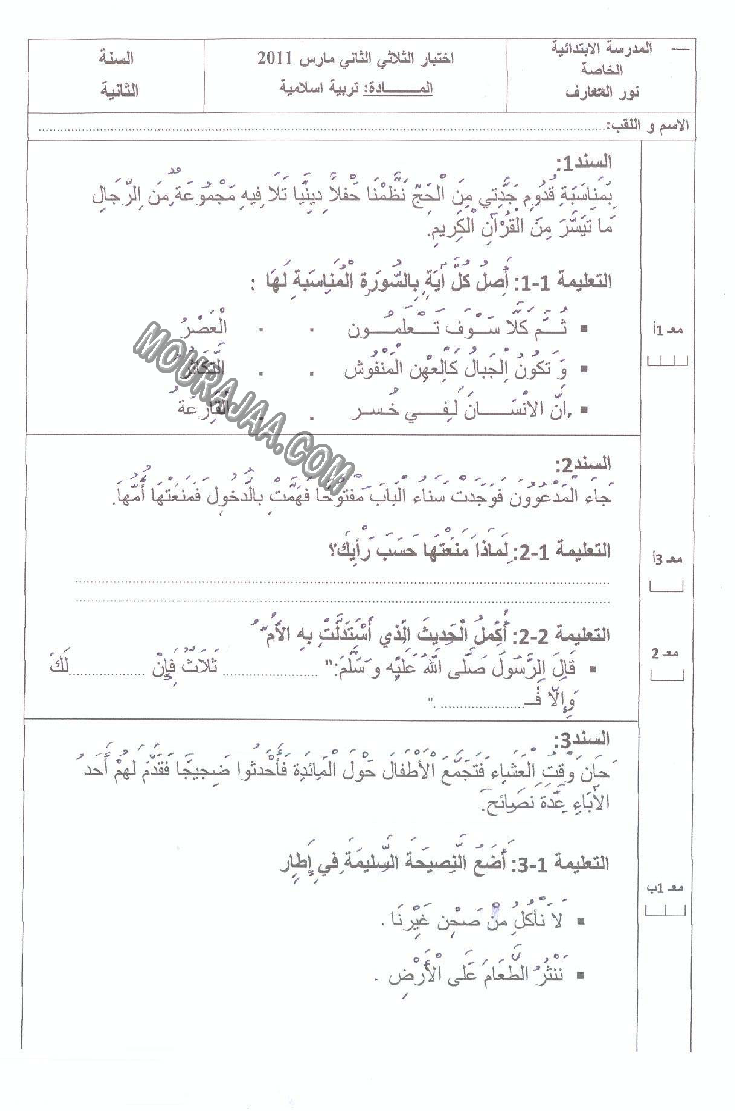 المدرسة الابتدائية
الخاصة
نور المعارف
اختبار الثلاثي الثاني مارس 2011
المـــــادة: تربية اسلامية
السنة
الثانية
الاسم و اللقب:
السند1:
بِمُنَاسَبَةِ قُدُومِ جَدَّتِي مِنَ الْحَجِّ نَظَّمْنَا حَفْلاً دِينِيًّا تَلَا فِيهِ مَجْمُوعَةٌ مِنَ الرِّجَالِ
مَا تَيَسَّرَ مِنَ الْقُرْآنِ الْكَرِيمِ.
التعليمة 1-1: أَصِلُ كُلَّ آيَةٍ بِالسُّورَةِ الْمُنَاسَبَةِ لَهَا :
معـ 1أ
▪ ثُــمَّ كَلَّا سَــوْفَ تَــعْلَمُــــون . . الْعَصْرُ
▪ وَ تَكُونُ الْجِبَالُ كَالْعِهْنِ الْمَنْفُوش . . التَّكَاثُرُ
▪ إِنَّ الاِنْسَـــــانَ لَـفِـــي خُـسـر . . الْقَارِعَةُ
السند2:
جَاءَ الْمَدْعُوُونَ فَوَجَدَتْ سَنَاءُ الْبَابَ مَفْتُوحًا فَهَمَّتْ بِالدُّخُولِ فَمَنَعَتْهَا أُمُّهَا.
التعليمة 2-1: لِمَاذَا مَنَعَتْهَا حَسَبَ رَأْيِكَ؟
معـ 3أ
التعليمة 2-2: أُكْمِلُ الْحَدِيثَ الَّذِي اسْتَدَلَّتْ بِهِ الأُمُّ
معـ 2
▪ قَالَ الرَّسُولُ صَلَّى اللهُ عَلَيْهِ وَسَلَّمَ:" ........................ ثَلَاثٌ فَإِنْ ................... لَكَ
وَإِلاَّ فَـ..................... ."
السند3:
حَانَ وَقْتُ الْعَشَاءِ فَتَجَمَّعَ الأَطْفَالُ حَوْلَ الْمَائِدَةِ فَأَحْدَثُوا ضَجِيجًا فَقَدَّمَ لَهُمْ أَحَدُ
الآبَاءِ عِدَّةَ نَصَائِحَ.
التعليمة 3-1: أَضَعُ النَّصِيحَةَ السَّلِيمَةَ فِي إِطَارٍ
معـ 1ب
▪ لَا نَأْكُلُ مِنْ صَحْنِ غَيْرِنَا .
▪ نَنْثُرُ الطَّعَامَ عَلَى الْأَرْضِ .
MOURAJAA.COM